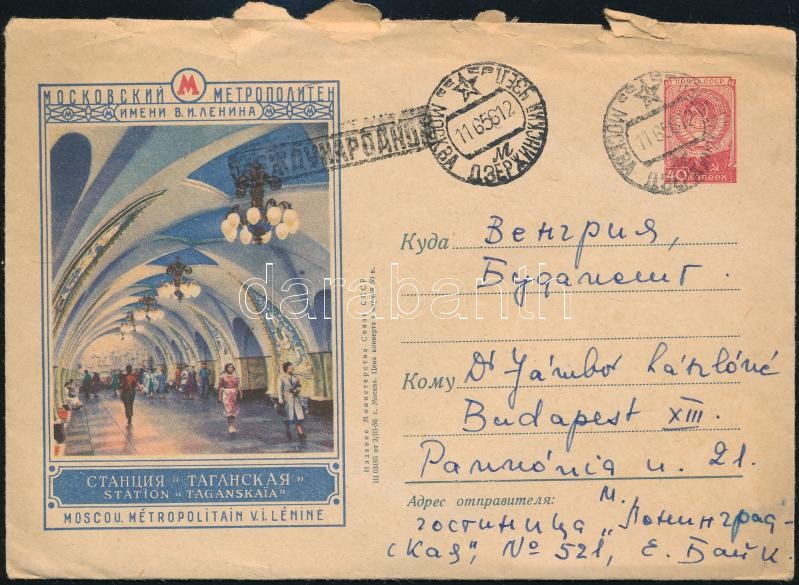 МОСКОВСКИЙ М МЕТРОПОЛИТЕН
ИМЕНИ В.И.ЛЕНИНА
СТАНЦИЯ „ТАГАНСКАЯ“
STATION “TAGANSKAÏA”
MOSCOU. MÉTROPOLITAIN V.I. LÉNINE
МЕЖДУНАРОДНОЕ
МОСКВА
11 6 56 12
М
ДЗЕРЖИНСКИЙ
ПОЧТА СССР
40 КОПЕЕК
МОСКВА
11 6 56 12
Издание Министерства Связи СССР
г. Москва. Цена конверта с маркой 50 к.
darabanth
Куда Венгрия,
Будапешт.
Кому Dr Jámbor Lászlóné
Budapest XIII.
Pannónia u. 21.
Адрес отправителя: М.
гостиница „Ленинград-
ская“, № 521, Е. Байи.